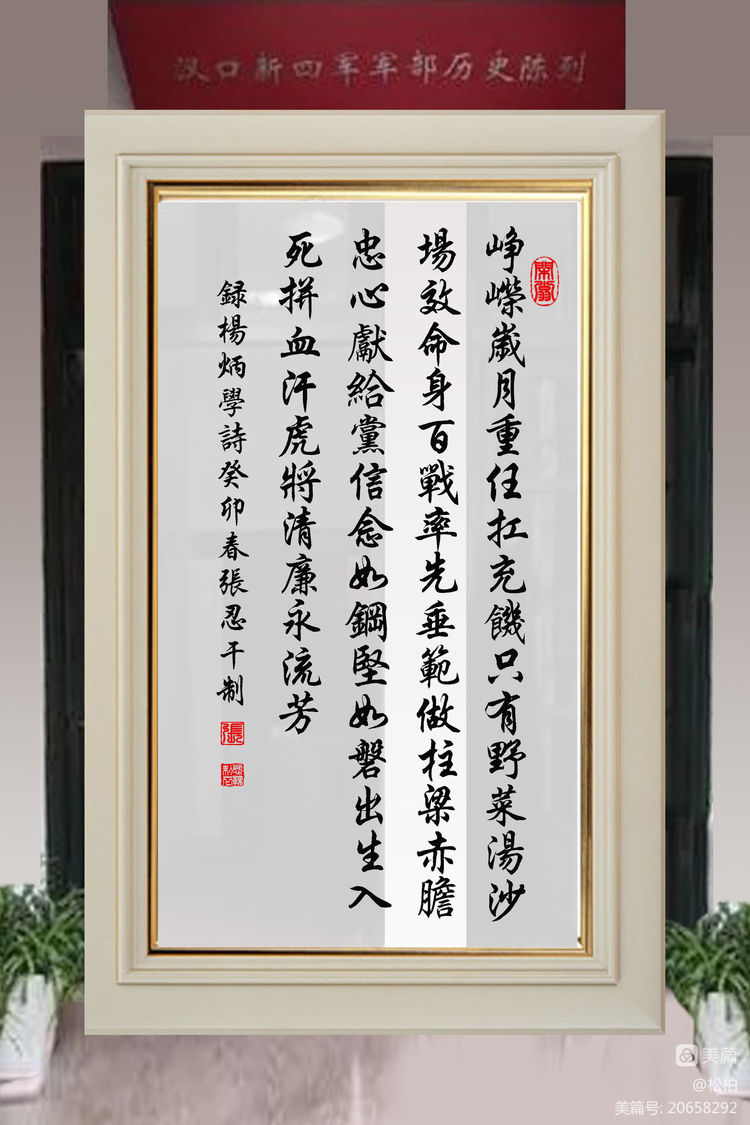 汉口新四军军部历史陈列
崢嶸歲月重任扛充饑只有野菜湯沙
場效命身百戰率先垂範做柱梁赤膽
忠心獻給黨信念如鋼堅如磐出生入
死拼血汗虎將清廉永流芳
録楊炳學詩癸卯春張忍干制
張
美篇
@松柏
美篇号: 20658292